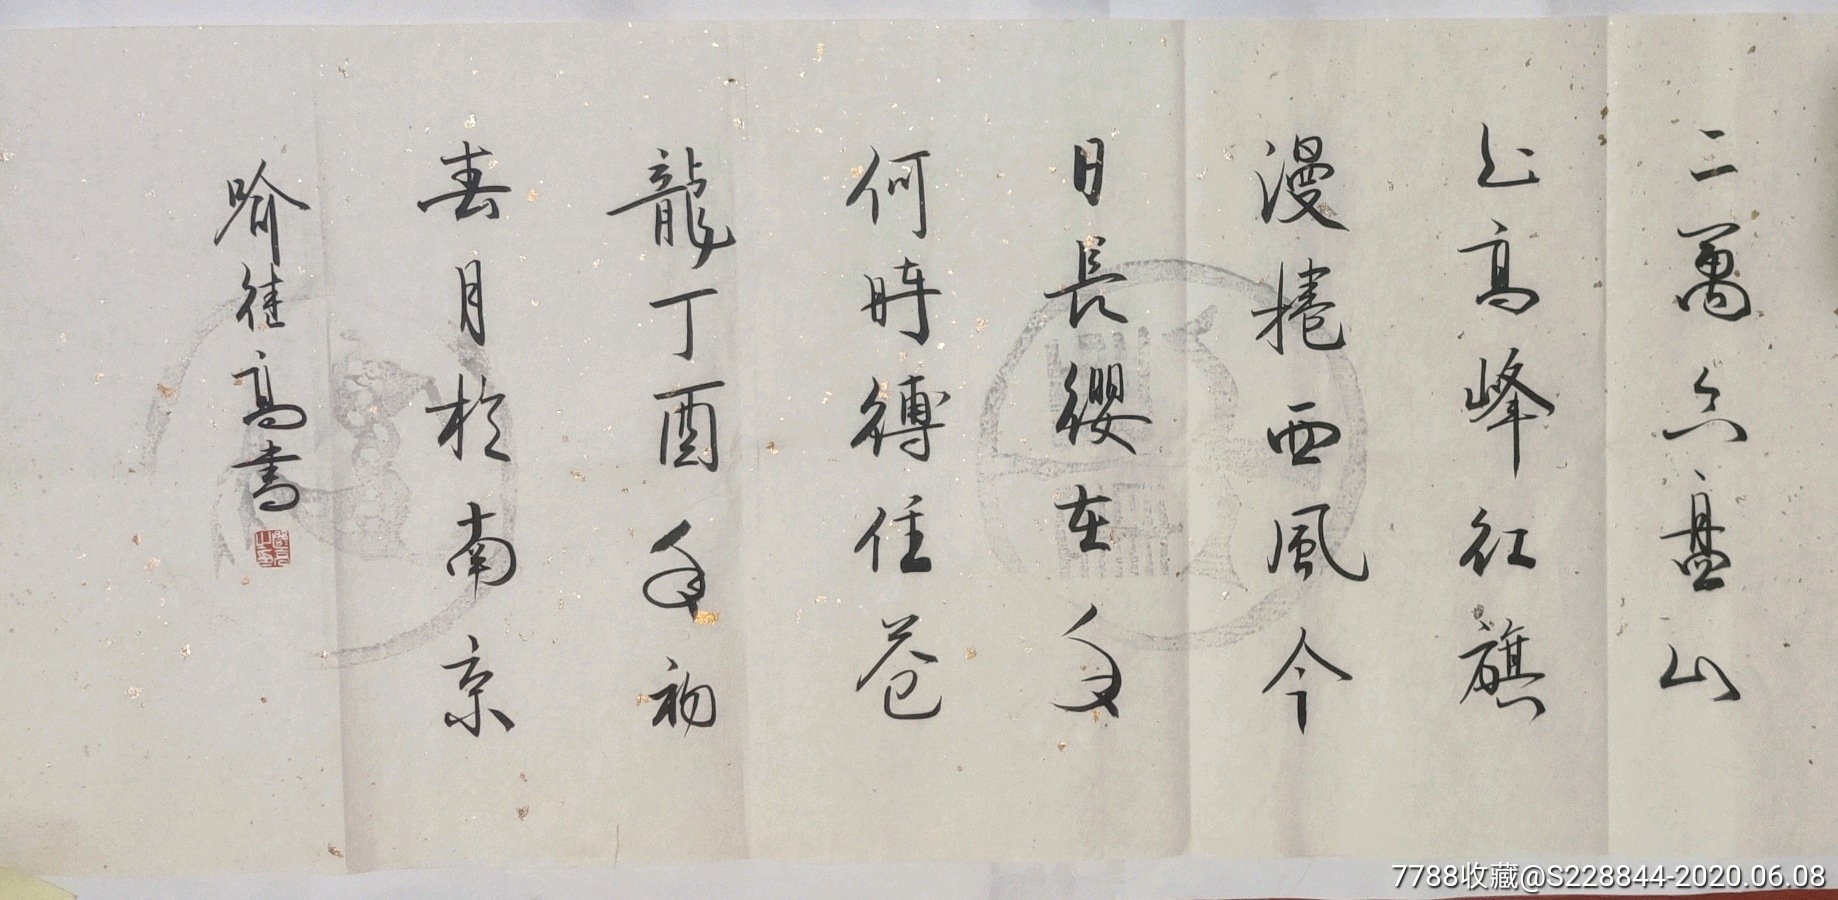 二萬六盤山
上高峰紅旗
漫捲西風今
日長纓在手
何時縛住苍
龍丁酉年初
春月於南京
喻继高書
7788收藏@S228844-2020.06.08